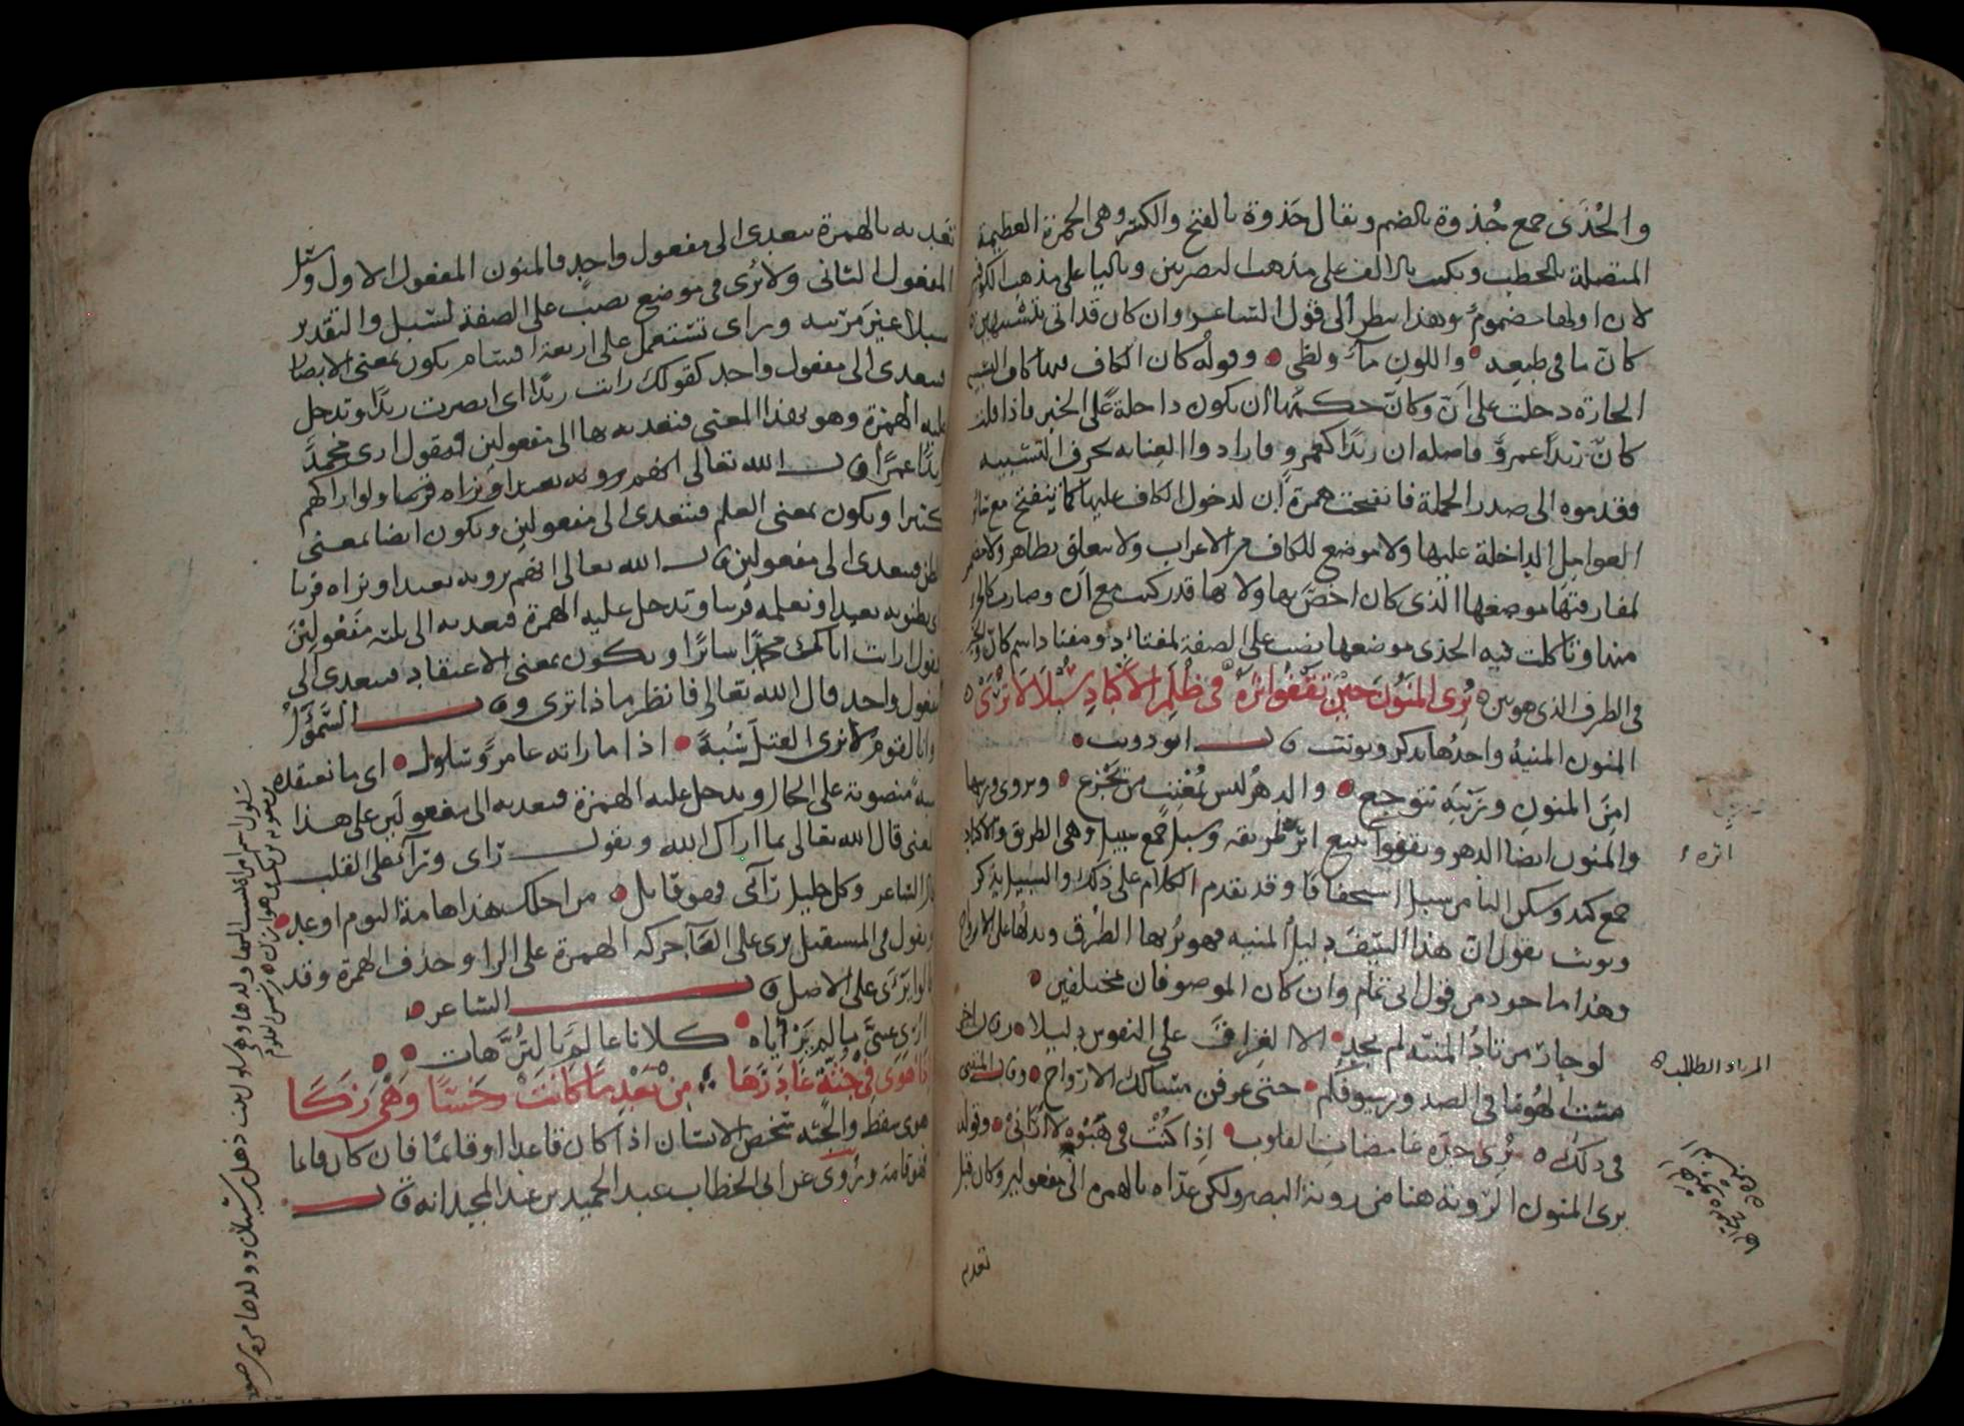 والجُذَى جمع جُذوة بالضم ويقال جَذوة بالفتح والكسر وهي الجمرة العظيمة
المتصلة بالحطب ويكتب بالالف على مذهب البصريين وباليا على مذهب الكوفيين
لان اولها مضموم وهذا ينظر الى قول الشاعر وان كان قد اتى بتشبيهين
كانّ ما في طبعه واللون ماءٌ ولظى وقوله كان الكاف فيها كاف التشبيه
الجارّة دخلت على أنّ وكان حكمها ان تكون داخلة على الخبر فاذا قلت
كانّ زيدًا عمروٌ فاصله ان زيدًا كعمرو فارادوا العناية بحرف التشبيه
فقدموه الى صدر الجملة فانفتحت همزة ان لدخول الكاف عليها كما ينفتح مع سائر
العوامل الداخلة عليها ولا موضع للكاف من الاعراب ولا يتعلق بظاهر ولا مضمر
لمفارقتها موضعها الذي كان اخصّ بها ولانها قد ركبت مع ان وصارت كالجزء
منها وتاكلت فيه الجذى موضعها نصب على الصفة لمفتاءد ومفتادا اسم كانّ والخبر
في الظرف الذي هو بين يُرِى المَنُونَ حِيْنَ تَقْفُو اثرَهُ في ظُلَمِ الاكبادِ سُبْلًا لا تُرَى
المنون المنية واحدها يذكر ويونث قال ابو ذويب
امِنَ المنونِ ورَيْبِهِ تتوجع والدهرُ ليس بمُعْتِبٍ من يَجْزع ويروى وريبها
والمنون ايضا الدهر ويقفوا يتبع اثره طريقه وسبل جمع سبيل وهي الطريق والاكباد
جمع كبد وسكن البا من سبل استخفافا وقد تقدم الكلام على ذلك والسبيل يذكر
ويونث يقول انّ هذا السَّيف دليلُ المنيه فهو يُريها الطُرق ويدلها على الارواح
وهذا ماخوذ من قول ابي تمام وان كان الموصوفان مختلفين
لو جارَ مرتادُ المنيّه لم يجدِ الا الفِراقَ على النفوس دليلا وقال اخر
في ذلك تُرِى حدّه غامضاتِ القلوب اذا كُنْتُ في هَبْوَةٍ لا أرَاني وقوله
يرى المنون الرؤية هنا من روية البصر ولكن عدّاه بالهمزه الى مفعولين وكان قبل
تقدم
اثره
المرتاد الطالب
تعديه بالهمزة يتعدى الى مفعول واحد فالمنون المفعول الاول وسُبل
المفعول الثاني ولا تُرَى في موضع نصب على الصفة لسُبل والتقدير
سبلا غيرَ مَرئيه وراى تستعمل على اربعة اقسام يكون بمعنى الابصار
فيتعدى الى مفعول واحد كقولك رايت زيدًا اي ابصرت زيدًا وتدخل
عليه الهمزة وهو بهذا المعنى فتعديه بها الى مفعولين فيقول ارى محمدٌ
زيدًا عمرًا قال الله تعالى انهم يرونه بعيدا ونراه قريبا ولو اراكهم
كثيرا ويكون بمعنى العلم فيتعدى الى مفعولين ويكون ايضا بمعنى
الظن فيتعدى الى مفعولين قال الله تعالى انهم يرونه بعيدا ونراه قريبا
اي يظنونه بعيدا ونعلمه قريبا وتدخل عليه الهمزة فتعديه الى ثلثة مَفْعُولِيْنَ
مفعول واحد قال الله تعالى فانظر ماذا ترى وقال السَّمَوْأَلُ
وانا لقوم لا نرى القتل سُبةً اذا ما راته عامرٌ وسَلُولُ اي ما نعتقده
سبةً منصوبة على الحال ويدخل عليه الهمزة فتعديه الى مفعولين على هذا
المعنى قال الله تعالى بما اراك الله ويقول رَأى ورَآء على القلب
قال الشاعر وكل خليل رآني فهو قايل من اجلك هذا هامة اليوم او غدِ
ويقول في المستقبل يرى على القاء حركه الهمزة على الرا وحذف الهمزة وقد
قالوا يَرْأَى على الاصل قال الشاعر
أُرِي عينيَّ ما لم تَرْأَياهُ كلانا عالِمٌ بالتُرَّهات
اذا هَوَى في جُثَّةٍ غَادَرَهَا مِنْ بَعْدِ مَا كَانَتْ خَسًا وَهْيَ زَكَا
هوى سقط والجُثه شخص الانسان اذا كان قاعدا او قائمًا فان كان قايما
فهو قامة ويُروى عن ابي الخطاب عبد الحميد بن عبد المجيد انه قال